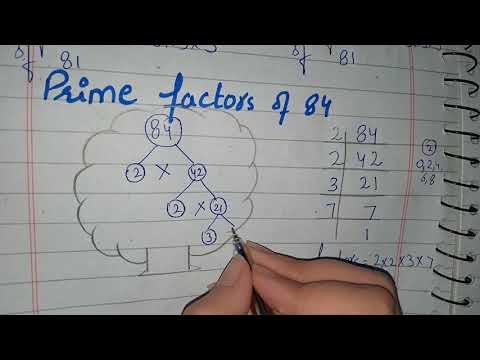 81
81
Prime factors of 84
84
2 × 42
2 × 21
3
2 | 84
2 | 42
3 | 21
7 | 7
1
2
0,2,4
6,8
= 2×2×3×7